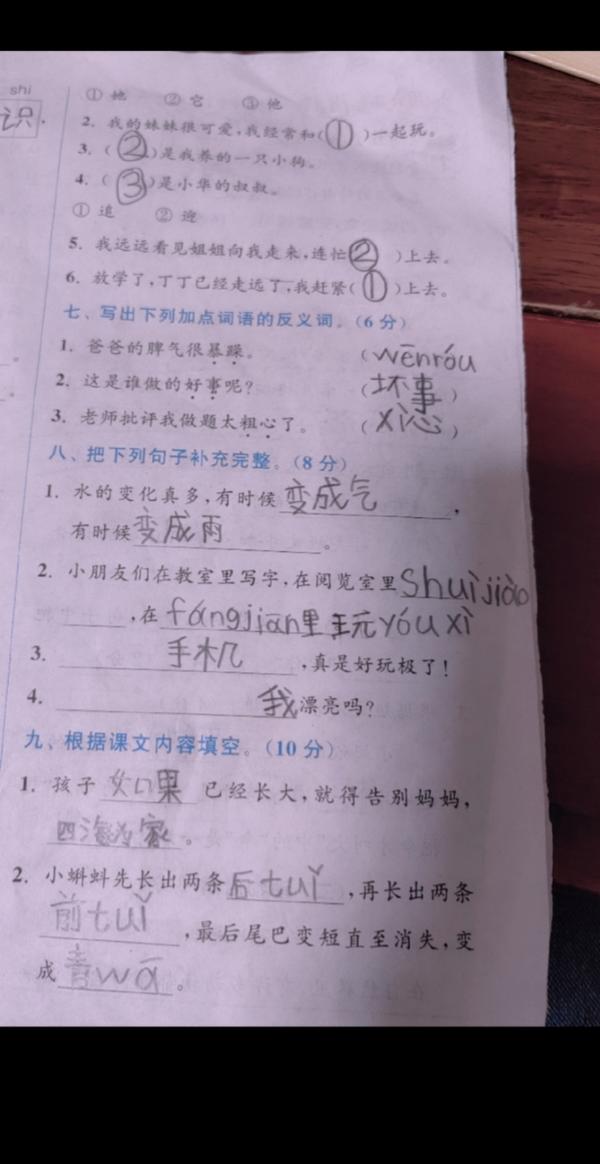 shi
识.
① 她 ② 它 ③ 他
2. 我的妹妹很可爱,我经常和(①)一起玩。
3. (②)是我养的一只小狗。
4. (③)是小华的叔叔。
① 追 ② 迎
5. 我远远看见姐姐向我走来,连忙(②)上去。
6. 放学了,丁丁已经走远了,我赶紧(①)上去。
七、写出下列加点词语的反义词。(6 分)
1. 爸爸的脾气很暴躁。 (wēnróu
2. 这是谁做的好事呢? (坏事)
3. 老师批评我做题太粗心了。 (xì心)
八、把下列句子补充完整。(8 分)
1. 水的变化真多,有时候变成气,
有时候变成雨。
2. 小朋友们在教室里写字,在阅览室里shuìjiào
,在fángjiān里玩yóuxì
3. 手机,真是好玩极了!
4. 我漂亮吗?
九、根据课文内容填空。(10 分)
1. 孩子如果已经长大,就得告别妈妈,
四海为家。
2. 小蝌蚪先长出两条后tuǐ,再长出两条
前tuǐ,最后尾巴变短直至消失,变
成青wā。